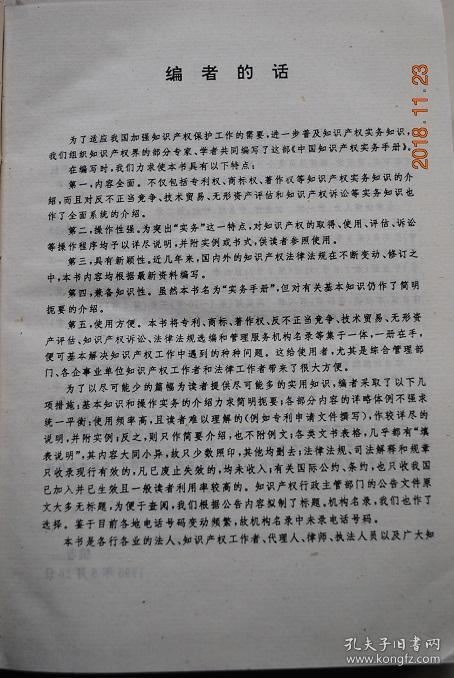 编者的话
为了适应我国加强知识产权保护工作的需要,进一步普及知识产权实务知识,
我们组织知识产权界的部分专家、学者共同编写了这部《中国知识产权实务手册》。
在编写时,我们力求使本书具有以下特点:
第一,内容全面。不仅包括专利权、商标权、著作权等知识产权实务知识的介
绍,而且对反不正当竞争、技术贸易、无形资产评估和知识产权诉讼等实务知识也
作了全面系统的介绍。
第二,操作性强。为突出“实务”这一特点,对知识产权的取得、使用、评估、诉讼
等操作程序均予以详尽说明,并附实例或书式,供读者参照使用。
第三,具有新颖性。近几年来,国内外的知识产权法律法规在不断变动、修订之
中,本书内容均根据最新资料编写。
第四,兼备知识性。虽然本书名为“实务手册”,但对有关基本知识仍作了简明
扼要的介绍。
第五,使用方便。本书将专利、商标、著作权、反不正当竞争、技术贸易、无形资
产评估、知识产权诉讼、法律法规选编和管理服务机构名录等集于一体,一册在手,
便可基本解决知识产权工作中遇到的种种问题。这给使用者,尤其是综合管理部
门、各企事业单位知识产权工作者和法律工作者带来了很大方便。
为了以尽可能少的篇幅为读者提供尽可能多的实用知识,编者采取了以下几
项措施:基本知识和操作实务的介绍力求简明扼要;各部分内容的详略体例不强求
统一平衡;使用频率高,且读者难以理解的(例如专利申请文件撰写),作较详尽的
说明,并附实例;反之,则只作简要介绍,也不附例文;各类文书表格,几乎都有“填
表说明”,其内容大同小异,故只少数照印,其他均删去;法律法规、司法解释和规章
只收录现行有效的,凡已废止失效的,均未收入;有关国际公约、条约,也只收我国
已加入并已生效且一般读者利用率较高的。知识产权行政主管部门的公告文件原
文大多无标题,为便于查阅,我们根据公告内容拟制了标题。机构名录,我们也作了
选择。鉴于目前各地电话号码变动频繁,故机构名录中未录电话号码。
本书是各行各业的法人、知识产权工作者、代理人、律师、执法人员以及广大知
2018.11.23
孔夫子旧书网
www.kongfz.com